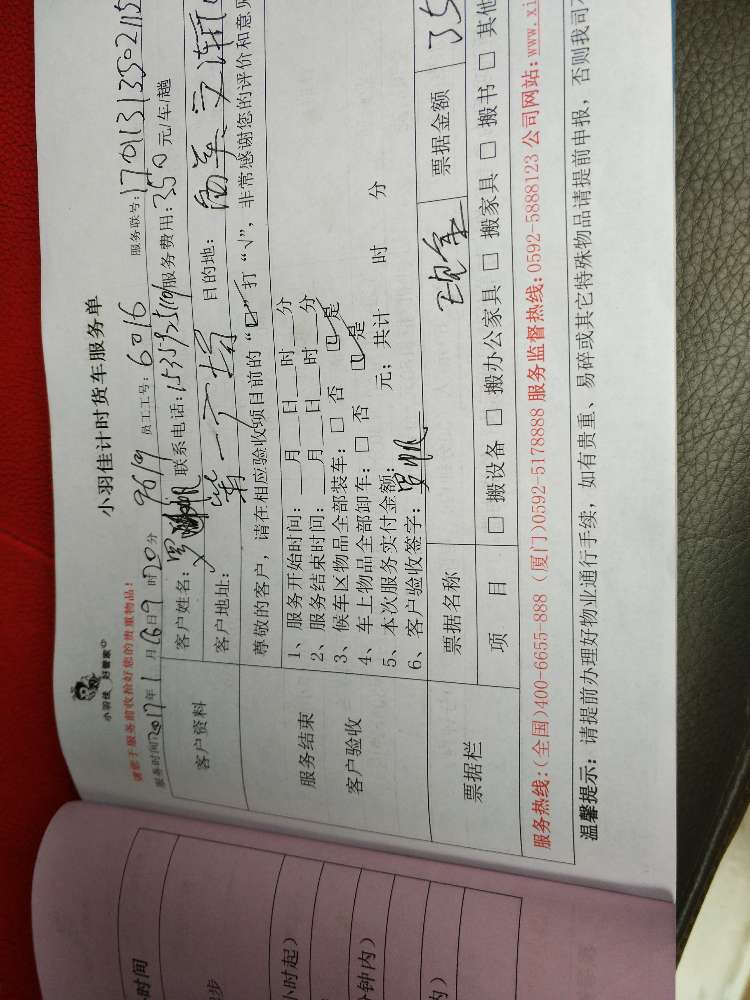 小羽佳 好管家
小羽佳计时货车服务单
请您于服务前收拾好您的贵重物品!
服务时间2017年1月6日9时20分 9619 员工工号:6016 服务联号:1701313502115
客户资料
客户姓名: 联系电话: 服务费用:350元/车/趟
客户地址: 第一广场 目的地:
服务结束
客户验收
尊敬的客户,请在相应验收项目前的“□”打“√”,非常感谢您的评价和意见
1、服务开始时间:___月___日___时___分
2、服务结束时间:___月___日___时___分
3、候车区物品全部装车:□ 否 ☑ 是
4、车上物品全部卸车:□ 否 ☑ 是
5、本次服务实付金额: 元; 共计 时 分
6、客户验收签字:
票据栏
票据名称 现金 票据金额 35
项 目 □ 搬设备 □ 搬办公家具 □ 搬家具 □ 搬书 □ 其他
服务热线:(全国)400-6655-888 (厦门)0592-5178888 服务监督热线:0592-5888123 公司网站:www.xi
温馨提示:请提前办理好物业通行手续,如有贵重、易碎或其它特殊物品请提前申报,否则我司不
时间
步
小时起)
钟内)
内)